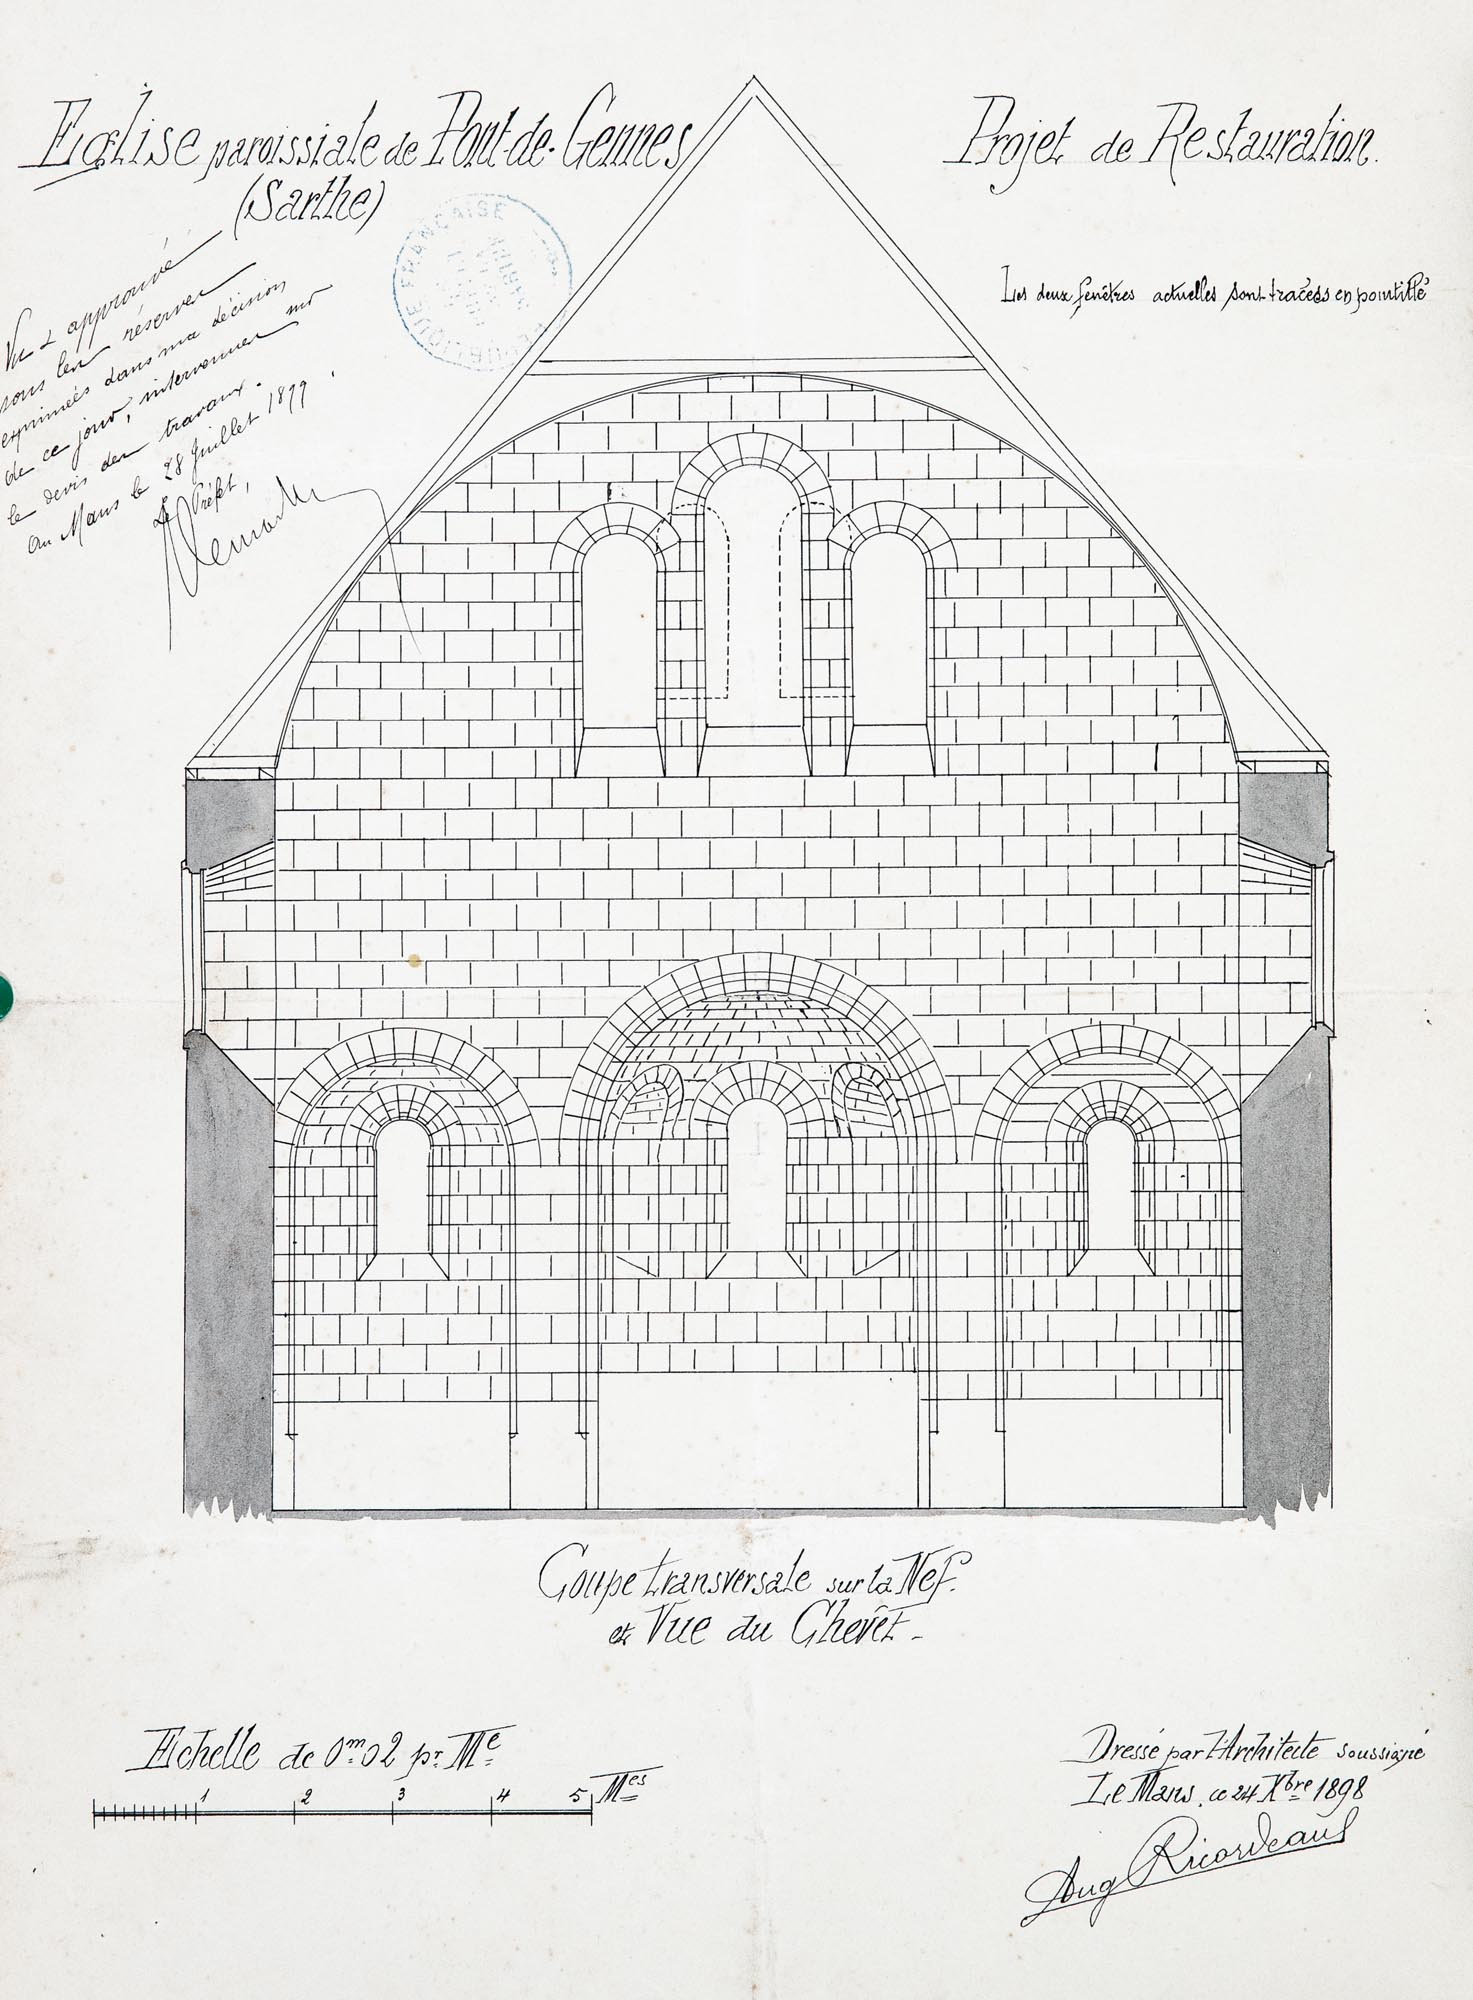 Eglise paroissiale de Pont-de-Gennes
(Sarthe)
Projet de Restauration.
Les deux fenêtres actuelles sont tracées en pointillé
Vu & approuvé
sous les réserves
exprimées dans ma décision
de ce jour, intervenue sur
le devis des travaux.
Au Mans le 28 Juillet 1899
Le Préfet,
FRANÇAISE
Coupe transversale sur la Nef.
et Vue du Chevêt.
Echelle de 0m02 pr. Me
1 2 3 4 5 Mes
Dressé par l'Architecte soussigné
Le Mans, ce 24 Xbre 1898
Aug Ricordeau